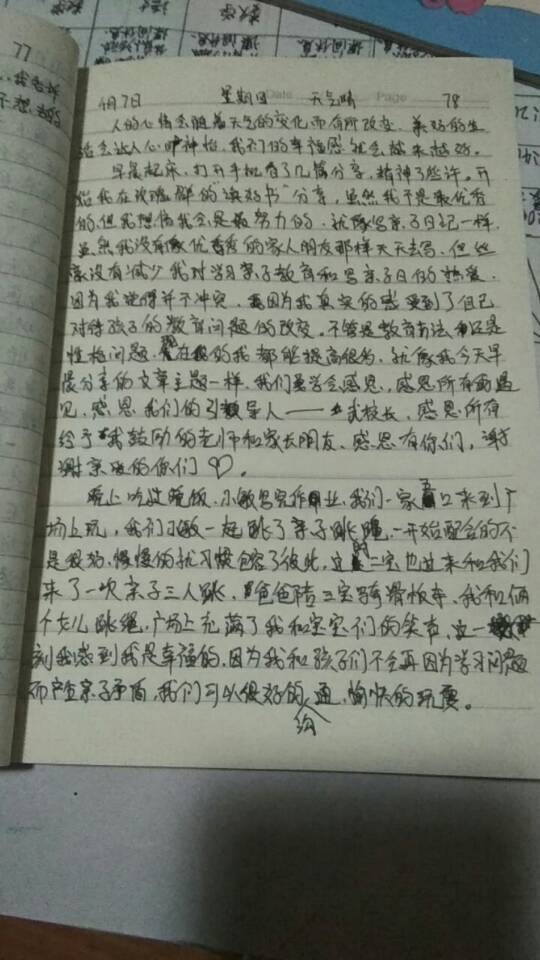 77
月7日 星期日 Date 天气晴 Page 78
人的心情会随着天气的变化而有所改变,美好的生
活会让人心旷神怡,我们的幸福感就会越来越好。
早晨起床,打开手机看了几篇分享,精神了些许。开
始我在玫瑰群的“读好书”分享,虽然我不是最优秀
的,但我相信我会是最努力的,就像写亲子日记一样,
虽然我没有像优秀的家人朋友那样天天去写,但丝
毫没有减少我对学习亲子教育和写亲子日的热爱,
因为我觉得并不冲突,因为我真实的感受到了自己
对待孩子的教育问题的改变。不管是教育方法还是
性格问题,现在的我都能提高很多,就像我今天早
晨分享的文章主题一样,我们要学会感恩,感恩所有的遇
见,感恩我们的引领导人——武校长,感恩所有
给予我鼓励的老师和家长朋友,感恩有你们,谢
谢亲爱的你们♡。
晚上吃过晚饭,小敏写完作业,我们一家五口来到广
场上玩,我们小敏一起跳了亲子跳绳,一开始配合的不
是很好,慢慢的就习惯包容了彼此,这时二宝也过来和我们
来了一次亲子三人跳,爸爸陪三宝骑滑板车,我和俩
个女儿跳绳,广场上充满了我和宝宝们的笑声,这一
刻我感到我是幸福的,因为我和孩子们不会再因为学习问题
而产生亲子矛盾,我们可以很好的沟通,愉快的玩耍。